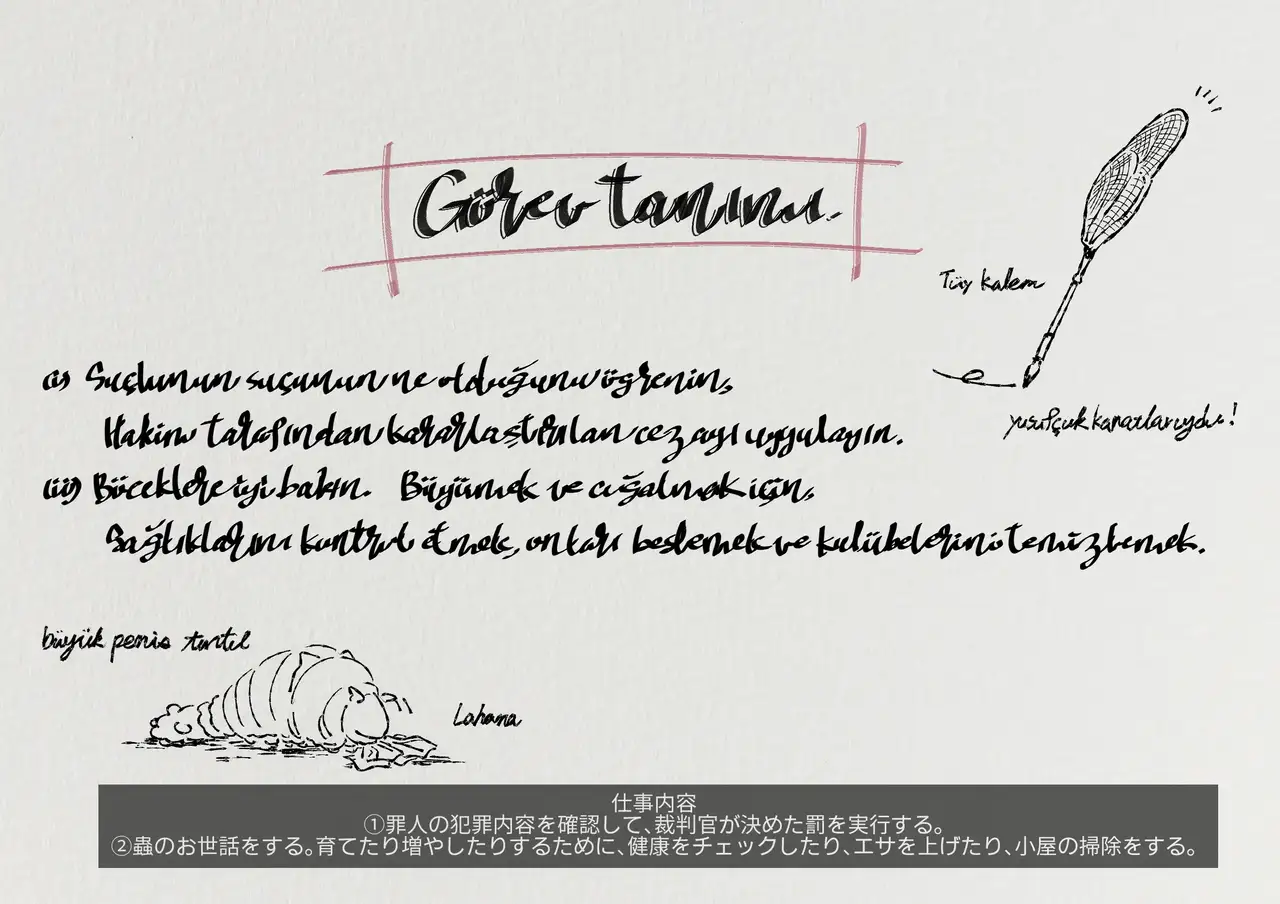 Görev tanımı.
Tüy kalem
(i) Suçlunun suçunun ne olduğunu öğrenin,
yusufçuk kanatlarıydı!
Hakim tarafından kararlaştırılan cezayı uygulayın.
(ii) Böceklere iyi bakın. Büyümek ve çoğalmak için,
Sağlıklarını kontrol etmek, onları beslemek ve kulübelerini temizlemek.
büyük penis tırtıl
Lahana
仕事内容
①罪人の犯罪内容を確認して、裁判官が決めた罰を実行する。
②蟲のお世話をする。育てたり増やしたりするために、健康をチェックしたり、エサを上げたり、小屋の掃除をする。